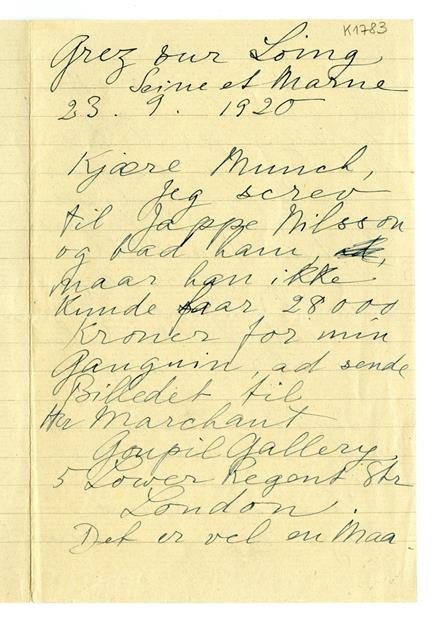 K1783
Grez sur Loing
Seine et Marne
23. 9. 1920
Kjære Munch,
Jeg screv
til Jappe Nilsson
og bad ham,
naar han ikke
kunde faar 28000
Kroner for min
Gauguin, ad sende
Billedet til
Hr Marchant
Goupil Gallery
5 Lower Regent Str
London.
Det er vel en Maa-